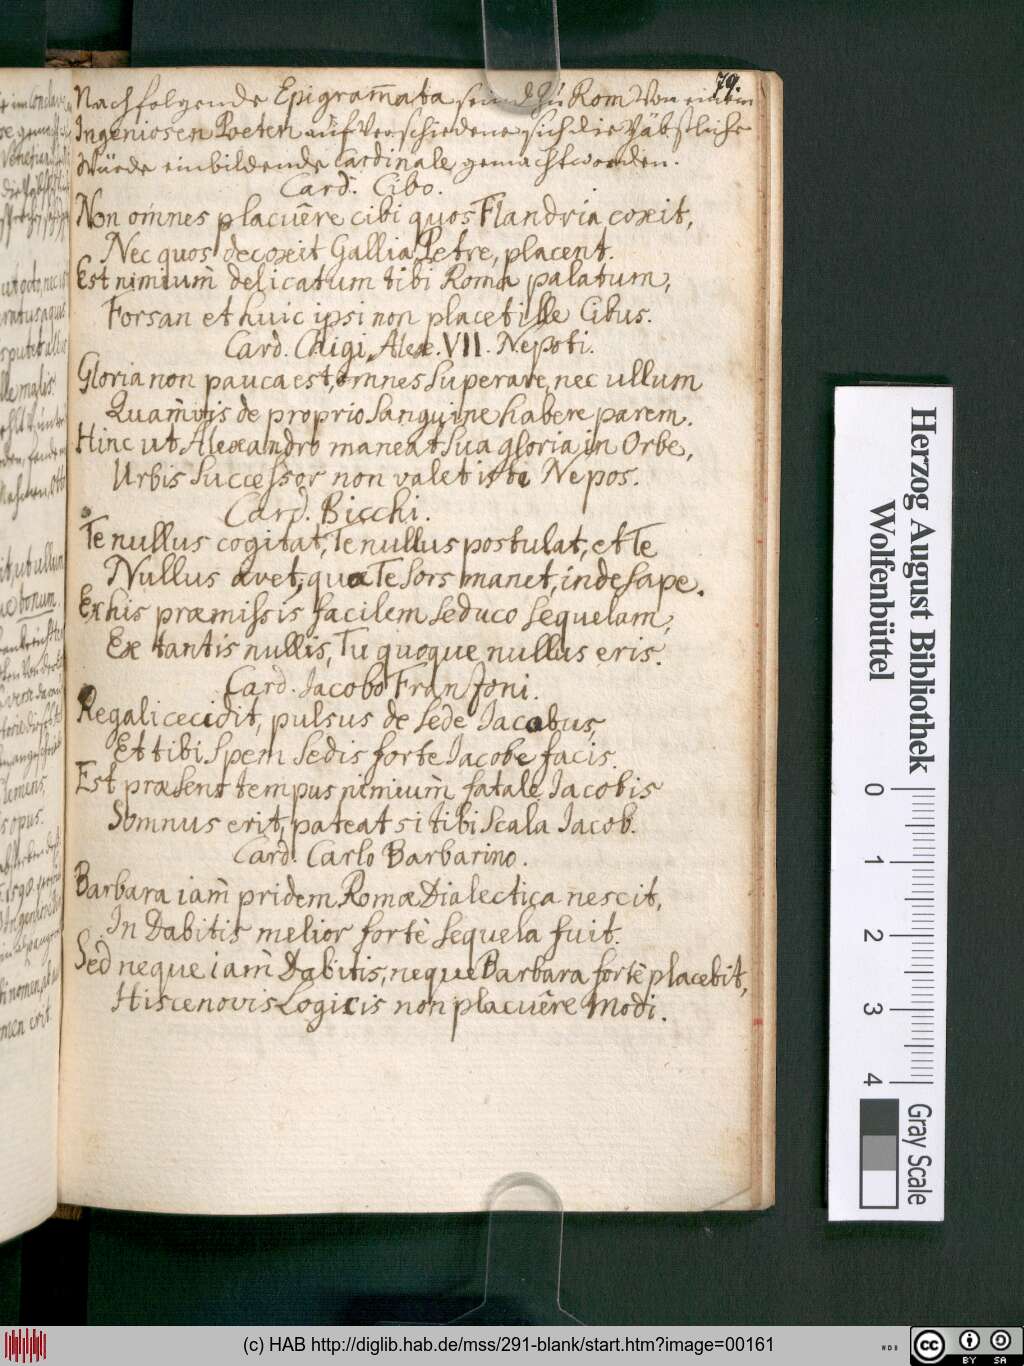 79.
Nachfolgende Epigram̄ata seind zu Rom von einem
Ingeniosen Poeten auf verschiedene sich die Päbstliche
Würde einbildende Cardinale gemacht worden.
Card. Cibo.
Non omnes placuêre cibi quos Flandria coxit,
Nec quos decoxit Gallia, Petre, placent.
Est nimium̀ delicatum tibi Roma palatum,
Forsan et huic ipsi non placet ille Cibus.
Card. Chigi, Alex. VII. Nepoti.
Gloria non pauca est, omnes superare, nec ullum
Quam̀vis de proprio sanguine habere parem.
Hinc ut Alexandro maneat sua gloria in Orbe,
Urbis Successor non valet iste Nepos.
Card. Bicchi.
Te nullus cogitat, Te nullus postulat, et Te
Nullus avet, quæ Te sors manet, inde sape.
Ex his præmissis facilem seduco sequelam,
Ex tantis nullis, Tu quoque nullus eris.
Card. Jacobo Franzoni.
Regali cecidit, pulsus de sede Jacobus,
Et tibi spem sedis forte Jacobe facis.
Est præsens tempus nimium̀ fatale Jacobis
Somnus erit, pateat si tibi scala Jacob.
Card. Carlo Barbarino.
Barbara iam̀ pridem Romæ Dialectica nescit,
In Dabitis melior fortè sequela fuit.
Sed neque iam̀ Dabitis, neque Barbara fortè placebit,
Hisce novis Logicis non placuêre Modi.
Herzog August Bibliothek
Wolfenbüttel
0 1 2 3 4
Gray Scale
(c) HAB http://diglib.hab.de/mss/291-blank/start.htm?image=00161
WDB
cc BY SA